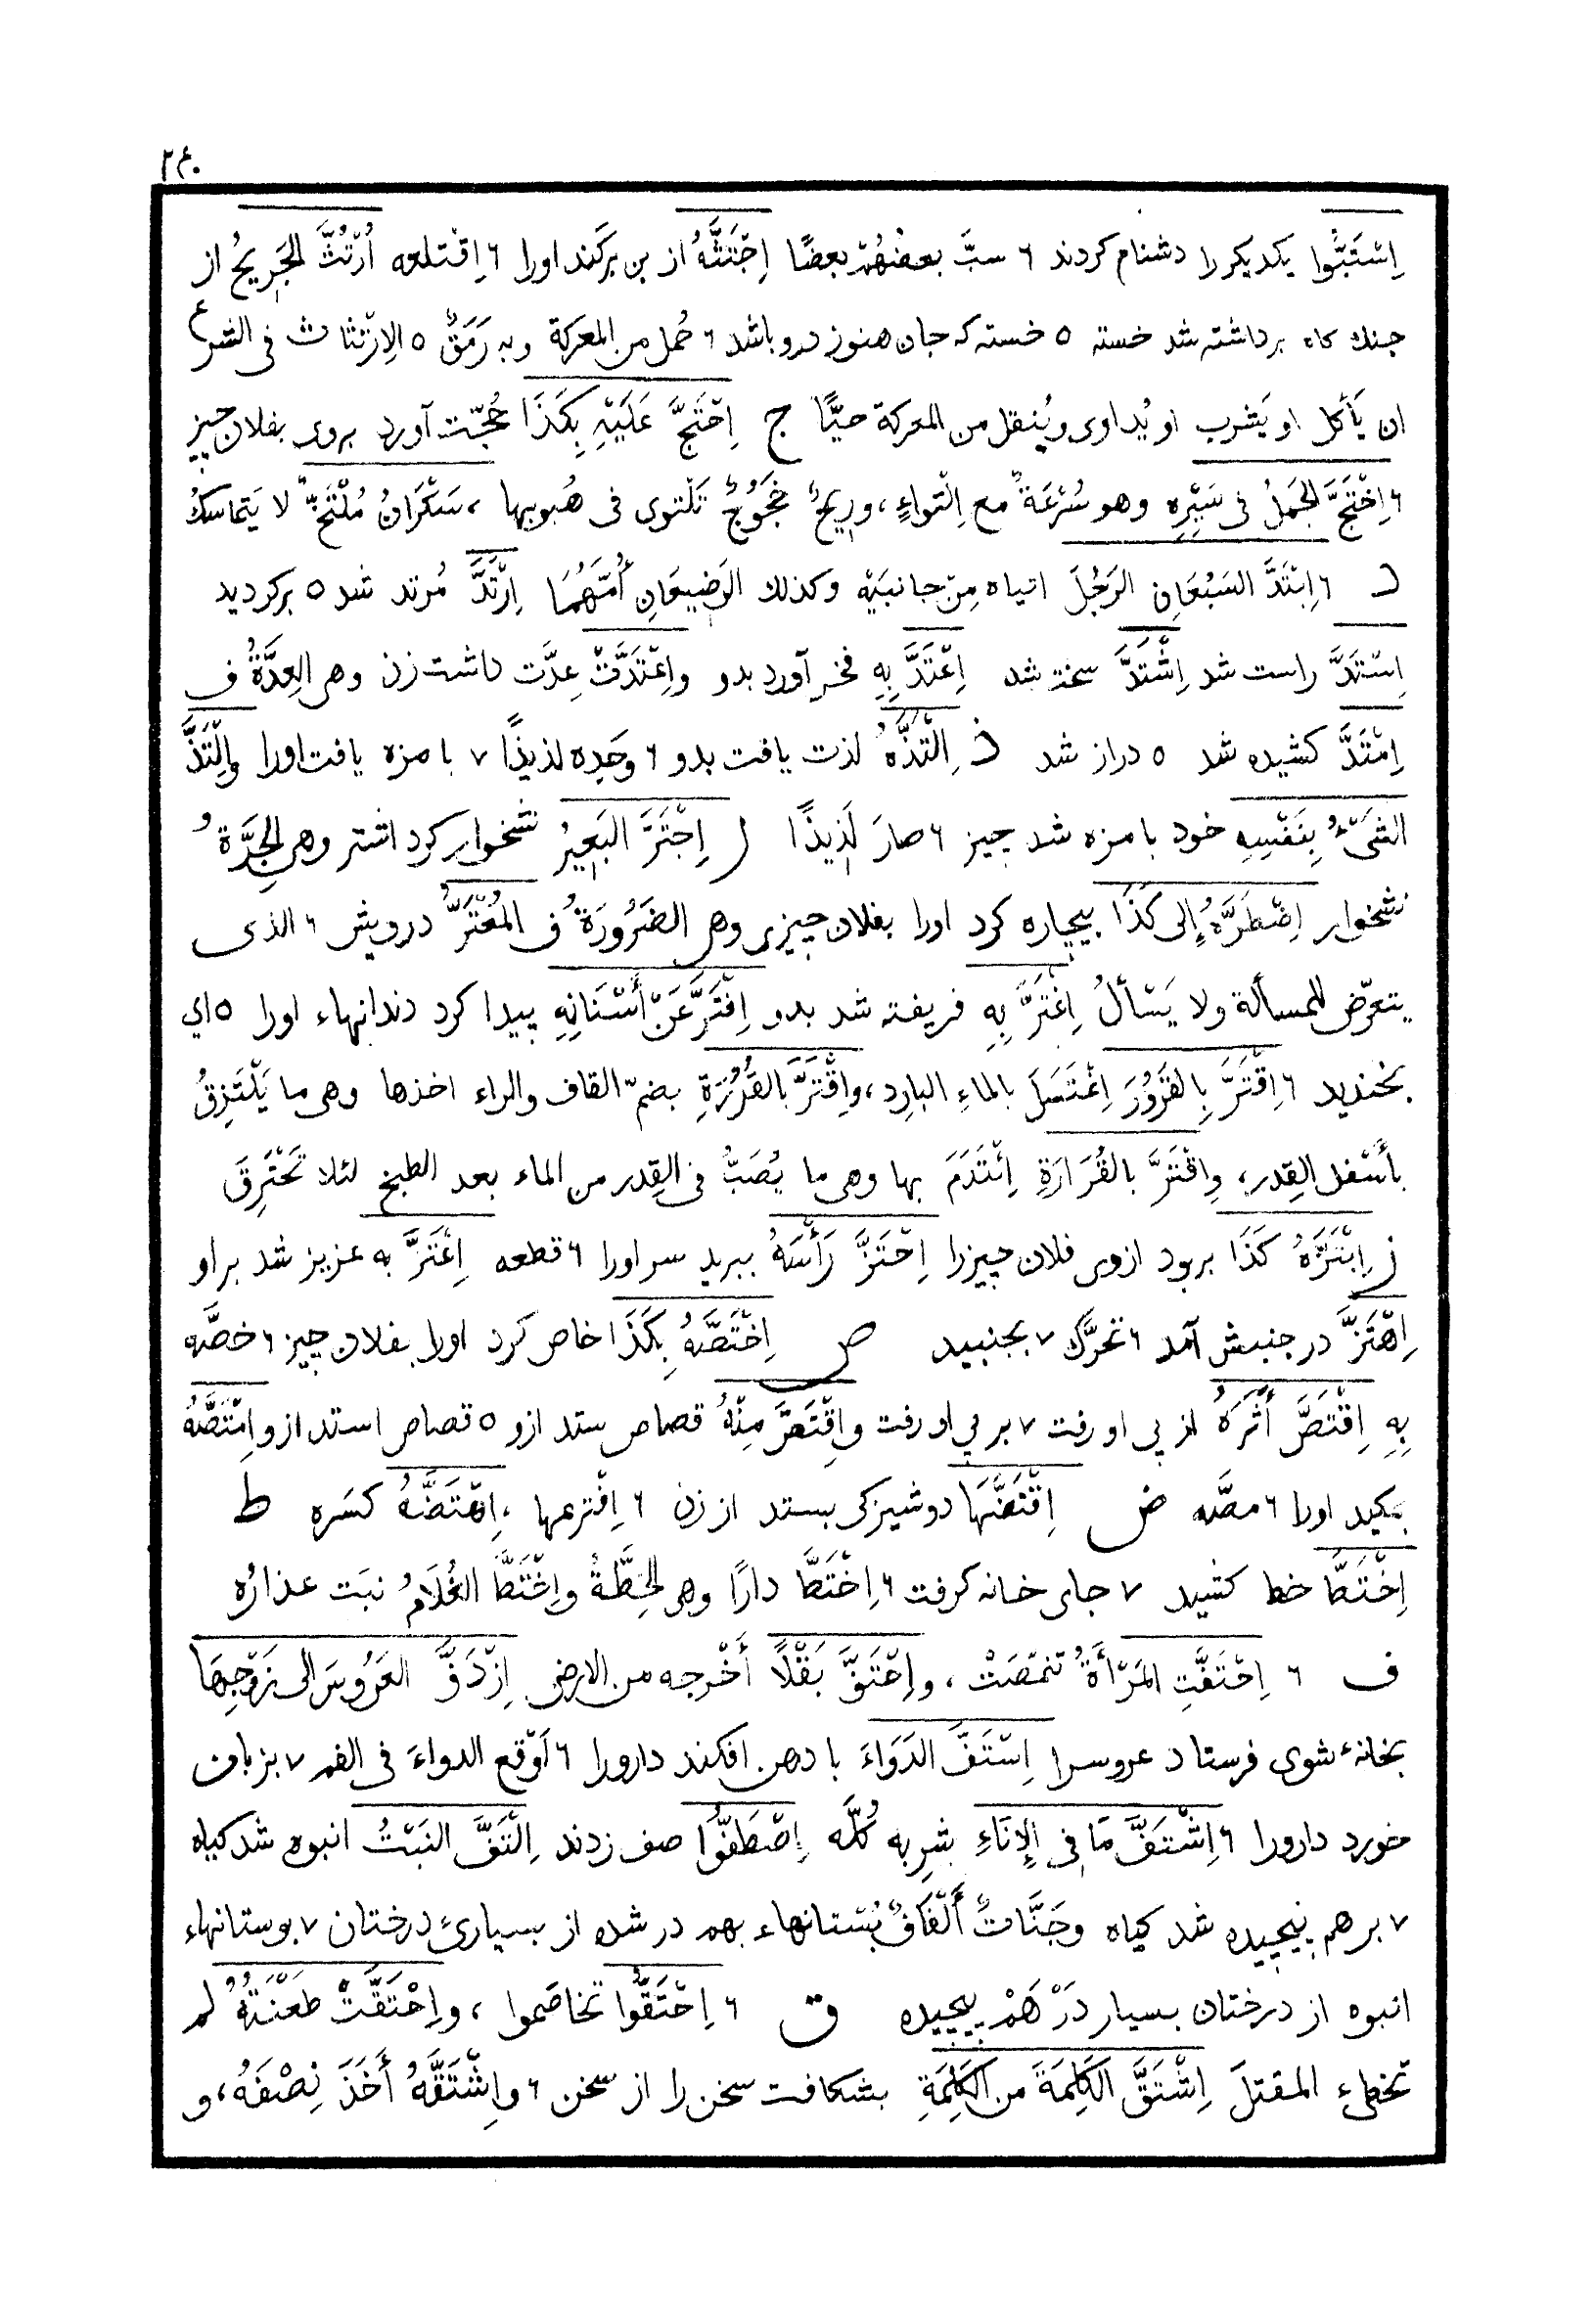 ۲۴۰
اِسْتَبُّوا یکدیکر را دشنام کردند ۶ سبَّ بعضُهُمْ بعضًا اِجْتَثَّهُ از بن برکند اورا ۶ اِقْتلعه اُرْتُثَّ الجَرِيحُ از
جنك كاه برداشته شد خسته ٥ خسته که جان هنوز درو باشد ۶ حُمل من المعركة وبه رَمَقٌ ٥ الاِرْتثاث فی الشرع
ان يَأكل او يَشرب او يُداوى ويُنقل من المعركة حيًّا ج اِحْتَجَّ عَلَيْهِ بِكَذَا حُجّت آورد بروی بفلان چيز
۶ اِخْتَجَّ الجَمَلُ فى سَيْرِهِ وهو سُرْعَةٌ مع اِلْتواءٍ، وريحٌ خَجَوْجٌ تَلْتوى فى هُبوبها ، سَكْرَانُ مُلْتَخٌّ لا يَتماسكُ
د ۶ اِبْتَدَّ السَبُعَانِ الرَجُلَ اتياه مِنْ جانبَيْهِ وكذلك الرَضِيعَانِ أُمَّهُمَا اِرْتَدَّ مُرتد شد ٥ برکردید
اِسْتَدَّ راست شد اِشْتَدَّ سخت شد اِعْتَدَّ بِهِ فخر آورد بدو واِعْتَدَّتْ عِدَّت داشت زن وهى العِدَّةُ ف
اِمْتَدَّ کشیده شد ٥ دراز شد ذ اِلْتَذَّهُ لذت یافت بدو ۶ وجَده لذيذًا ۷ با مزه یافت اورا واِلْتَذَّ
الشَىْءُ بِنَفْسِهِ خود با مزه شد چیز ۶ صارَ لَذِيذًا ر اِجْتَرَّ البَعِيرُ نشخوار کرد اشتر وهى الجِرَّةُ
نشخوار اِضْطَرَّهُ إلى كَذَا بیچاره کرد اورا بفلان چیزی وهى الضَرُورَةُ ف المُعْتَرُّ درویش ۶ الذى
يتعرّض للمسألة ولا يَسْألُ اِغْتَرَّ بِهِ فریفته شد بدو اِفْتَرَّ عَنْ أَسْنَانِهِ پیدا کرد دندانهاء اورا ٥ اي
بخندید ۶ اِقْتَرَّ بِالقَرُورِ اِغْتَسَلَ بالماءِ البارِد، واِقْتَرَّ بالقُرُرَةِ بضمّ القاف والراء اخذها وهى ما يَلْتَزِقُ
بأَسْفل القِدر، واِقْتَرَّ بالقُرَارَةِ اِئْتَدَمَ بها وهى ما يُصَبُّ فى القِدر من الماء بعد الطبخ لئلا تَحْتَرِقَ
ز اِبْتَزَّهُ كَذَا بربود ازوی فلان چیزرا اِحْتَزَّ رَأْسَهُ ببرید سر اورا ۶ قطعه اِعْتَزَّ به عزیز شد بر او
اِهْتَزَّ در جنبش آمد ۶ تحرَّك ۷ بجنبید ص اِخْتَصَّهُ بِكَذَا خاص کرد اورا بفلان چیز ۶ خصَّه
بِهِ اِقْتَصَّ أَثَرَهُ از پی او رفت ۷ بر پي او رفت واِقْتَصَّ مِنْهُ قصاص ستد ازو ٥ قصاص استد ازو اِمْتَصَّهُ
بمکید اورا ۶ مصَّه ض اِقْتَضَّهَا دوشیزکی بستد از زن ۶ اِفْترعها ، اِهْتَضَّهُ كسَره ط
اِخْتَطَّ خط کشید ۷ جای خانه کرفت ۶ اِخْتَطَّ دارًا وهى الخِطَّةُ واِخْتَطَّ الغُلَامُ نبَت عذارُه
ف ۶ اِحْتَفَّتِ المَرْأَةُ تنمّصَتْ ، واِحْتَفَّ بَقْلًا أَخْرجه من الارض اِزْدَفَّ العَرُوسَ الى زَوْجِهَا
بخانهٔ شوی فرستاد عروسرا اِسْتَفَّ الدَوَاءَ با دهن افکند دارورا ۶ اَوْقع الدواءَ فى الفم ۷ بزبان
خورد دارورا ۶ اِشْتَفَّ مَا فِى الإِنَاءِ شرِبه كُلَّه اِصْطَفُّوا صف زدند اِلْتَفَّ النَبْتُ انبوه شد کیاه
۷ بر هم پیچیده شد کیاه وجَنَّاتٌ أَلْفَافٌ بُسْتانهاء بهم در شده از بسیاریٔ درختان ۷ بوستانهاء
انبوه از درختان بسیار دَرْ هَمْ پیچیده ق ۶ اِحْتَقُّوا تخاصَموا ، واِحْتَقَّتْ طَعْنَتُهُ لم
تخطئ المقتلَ اِشْتَقَّ الكَلِمَةَ من الكَلِمَةِ بشکافت سخن را از سخن ۶ واِشْتَقَّهُ أَخَذَ نِصْفَهُ، و